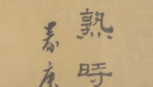 熟時
春康